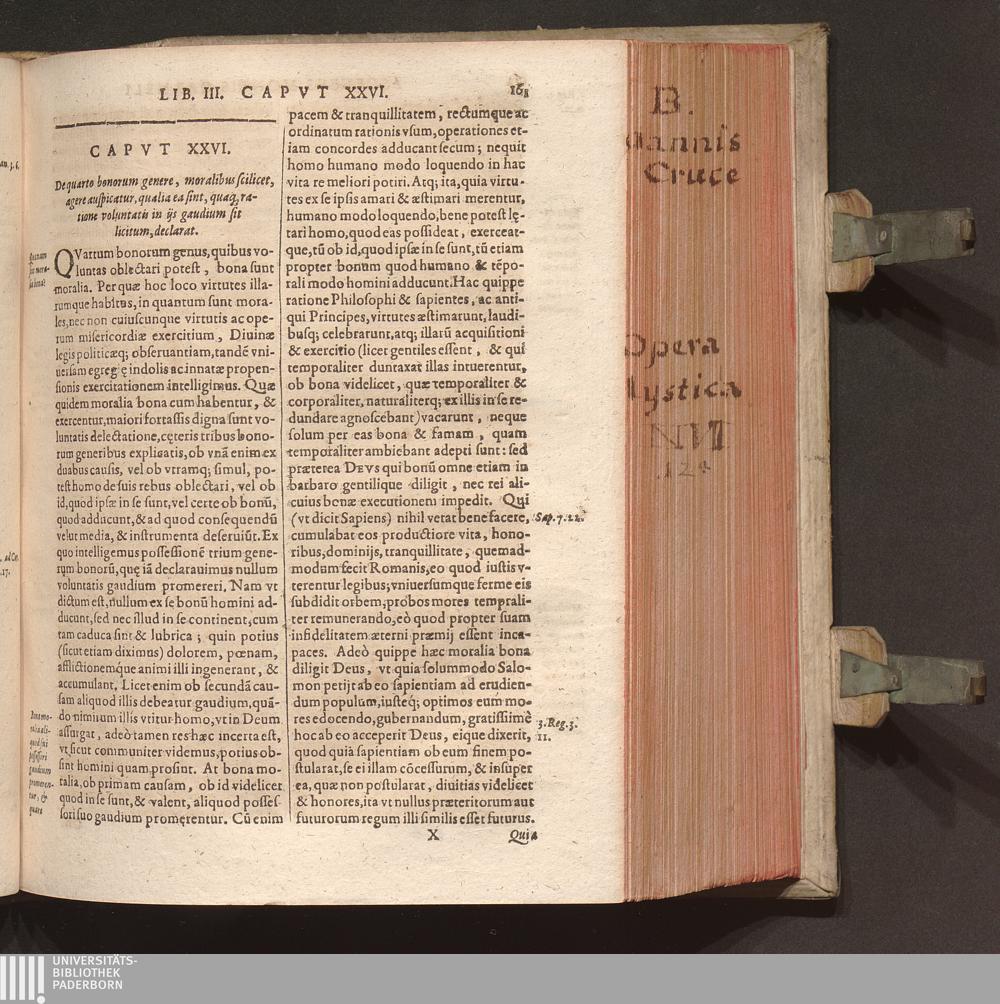 LIB. III. CAPVT XXVI.
CAPVT XXVI.
De quarto bonorum genere, moralibus scilicet,
agere auspicatur, qualia ea sint, quaq, ra-
tione voluntatis in ijs gaudium sit
licitum, declarat.
QVartum bonorum genus, quibus vo-
luntas oblectari potest, bona sunt
moralia. Per quæ hoc loco virtutes illa-
rumque habitus, in quantum sunt mora-
les, nec non cuiuscunque virtutis ac ope-
rum misericordiæ exercitium, Diuinæ
legis politicæq; obseruantiam, tandē vni-
uersam egregię indolis ac innatæ propen-
sionis exercitationem intelligimus. Quæ
quidem moralia bona cum habentur, &
exercentur, maiori fortassis digna sunt vo-
luntatis delectatione, cęteris tribus bono-
rum generibus explicatis, ob vnā enim ex
duabus causis, vel ob vtramq; simul, po-
test homo de suis rebus oblectari, vel ob
id, quod ipsæ in se sunt, vel certe ob bonū,
quod adducunt, & ad quod consequendū
velut media, & instrumenta deseruiūt. Ex
quo intelligemus possessionē trium gene-
rum bonorū, quę iā declarauimus nullum
voluntatis gaudium promereri. Nam vt
dictum est, nullum ex se bonū homini ad-
ducunt, sed nec illud in se continent, cum
tam caduca sint & lubrica; quin potius
(sicut etiam diximus) dolorem, pœnam,
afflictionemque animi illi ingenerant, &
accumulant. Licet enim ob secundā cau-
sam aliquod illis debeatur gaudium, quā-
do nimirum illis vtitur homo, vt in Deum
assurgat, adeò tamen res hæc incerta est,
vt sicut communiter videmus, potius ob-
sint homini quam prosint. At bona mo-
talia, ob primam causam, ob id videlicet
quod in se sunt, & valent, aliquod posses-
sori suo gaudium promęrentur. Cū enim
pacem & tranquillitatem, rectumque ac
ordinatum rationis vsum, operationes et-
iam concordes adducant secum; nequit
homo humano modo loquendo in hac
vita re meliori potiri. Atq; ita, quia virtu-
tes ex se ipsis amari & æstimari merentur,
humano modo loquendo, bene potest lę-
tari homo, quod eas possideat, exerceat-
que, tū ob id, quod ipsæ in se sunt, tū etiam
propter bonum quod humano & tēpo-
rali modo homini adducunt. Hac quippe
ratione Philosophi & sapientes, ac anti-
qui Principes, virtutes æstimarunt, laudi-
busq; celebrarunt, atq; illarū acquisitioni
& exercitio (licet gentiles essent, & qui
temporaliter duntaxat illas intuerentur,
ob bona videlicet, quæ temporaliter &
corporaliter, naturaliterq; ex illis in se re-
dundare agnoscebant) vacarunt, neque
solum per eas bona & famam, quam
temporaliter ambiebant adepti sunt: sed
præterea DEVS qui bonū omne etiam in
barbaro gentilique diligit, nec rei ali-
cuius bonæ executionem impedit. Qui
(vt dicit Sapiens) nihil vetat bene facere,
cumulabat eos productiore vita, hono-
ribus, dominijs, tranquillitate, quemad-
modum fecit Romanis, eo quod iustis v-
terentur legibus; vniuersumque ferme eis
subdidit orbem, probos mores temprali-
ter remunerando, eò quod propter suam
infidelitatem æterni præmij essent inca-
paces. Adeò quippe hæc moralia bona
diligit Deus, vt quia solummodo Salo-
mon petijt ab eo sapientiam ad erudien-
dum populum, iusteq; optimos eum mo-
res edocendo, gubernandum, gratissimè
hoc ab eo acceperit Deus, eique dixerit,
quod quia sapientiam ob eum finem po-
stularat, se ei illam cōcessurum, & insuper
ea, quæ non postularat, diuitias videlicet
& honores, ita vt nullus præteritorum aut
futurorum regum illi similis esset futurus.
X Quia
Sap. 7. 22.
3. Reg. 3.
11.
B.
Cruce
Opera
Mystica
UNIVERSITÄTS-
BIBLIOTHEK
PADERBORN